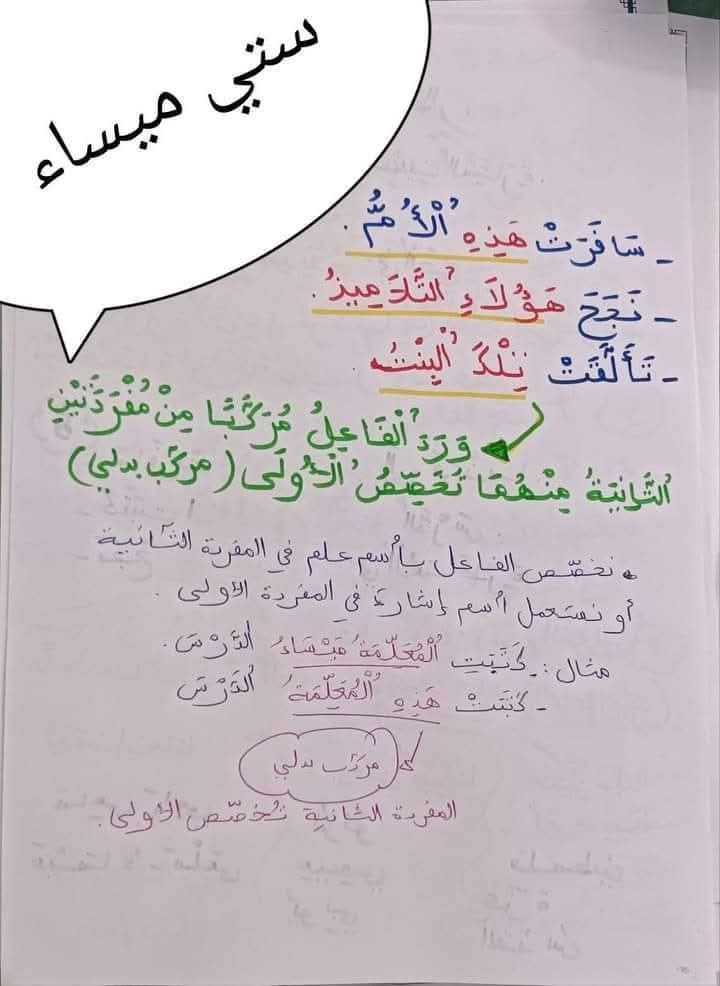 ستي ميساء
- سَافَرَتْ هَذِهِ الْأُمُّ.
- نَجَحَ هَؤُلَاءِ التَّلَامِيذُ.
- تَأَلَّقَتْ تِلْكَ الْبِنْتُ.
وَرَدَ الْفَاعِلُ مُرَكَّبًا مِنْ مُفْرَدَتَيْنِ
الثَّانِيَةُ مِنْهُمَا تُخَصِّصُ الْأُولَى (مركب بدلي)
• نخصّص الفاعل بٱسم علم في المفردة الثانية
أو نستعمل ٱسم إشارة في المفردة الأولى.
مثال: - كَتَبَتِ الْمُعَلِّمَةُ مَيْسَاءُ الدَّرْسَ.
- كَتَبَتْ هَذِهِ الْمُعَلِّمَةُ الدَّرْسَ
مركّب بدلي
المفردة الثانية تُخصّص الأولى.